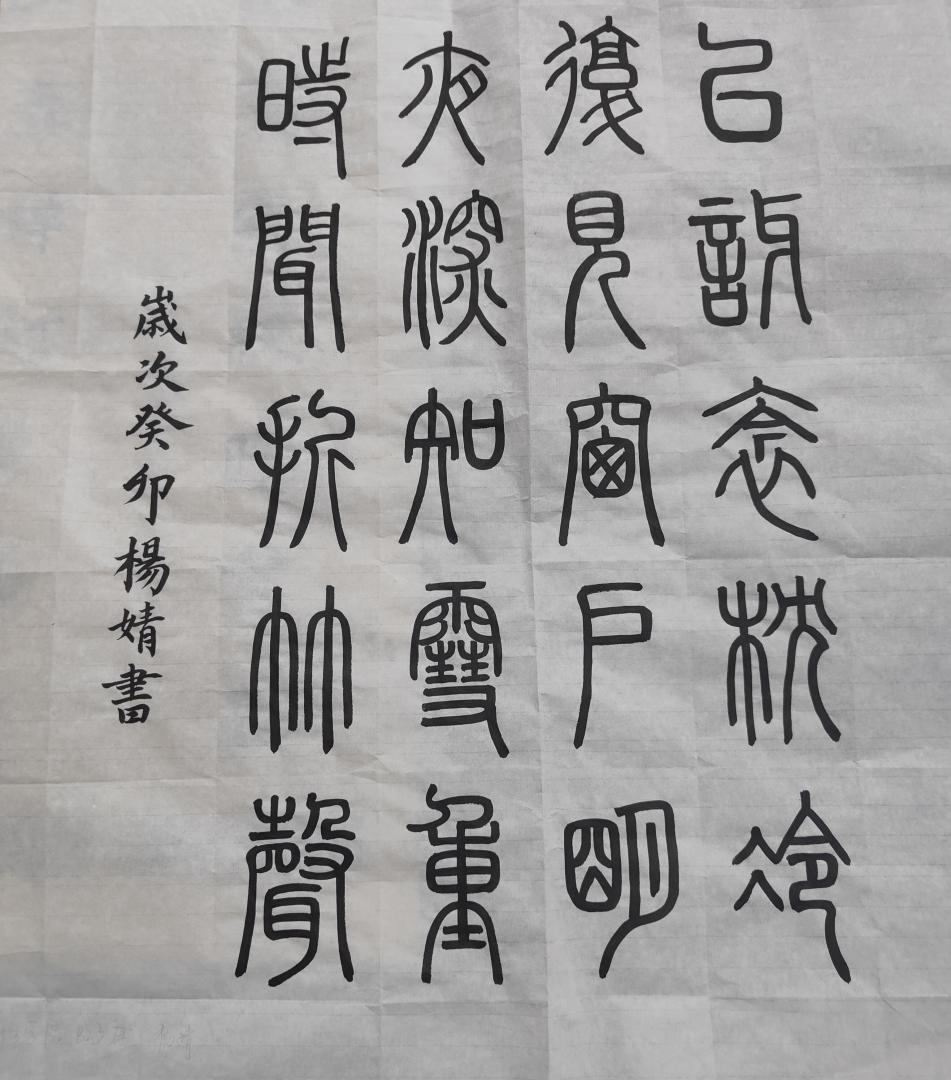 已訝衾枕冷
復見窗戶明
夜深知雪重
時聞折竹聲
歲次癸卯楊婧書